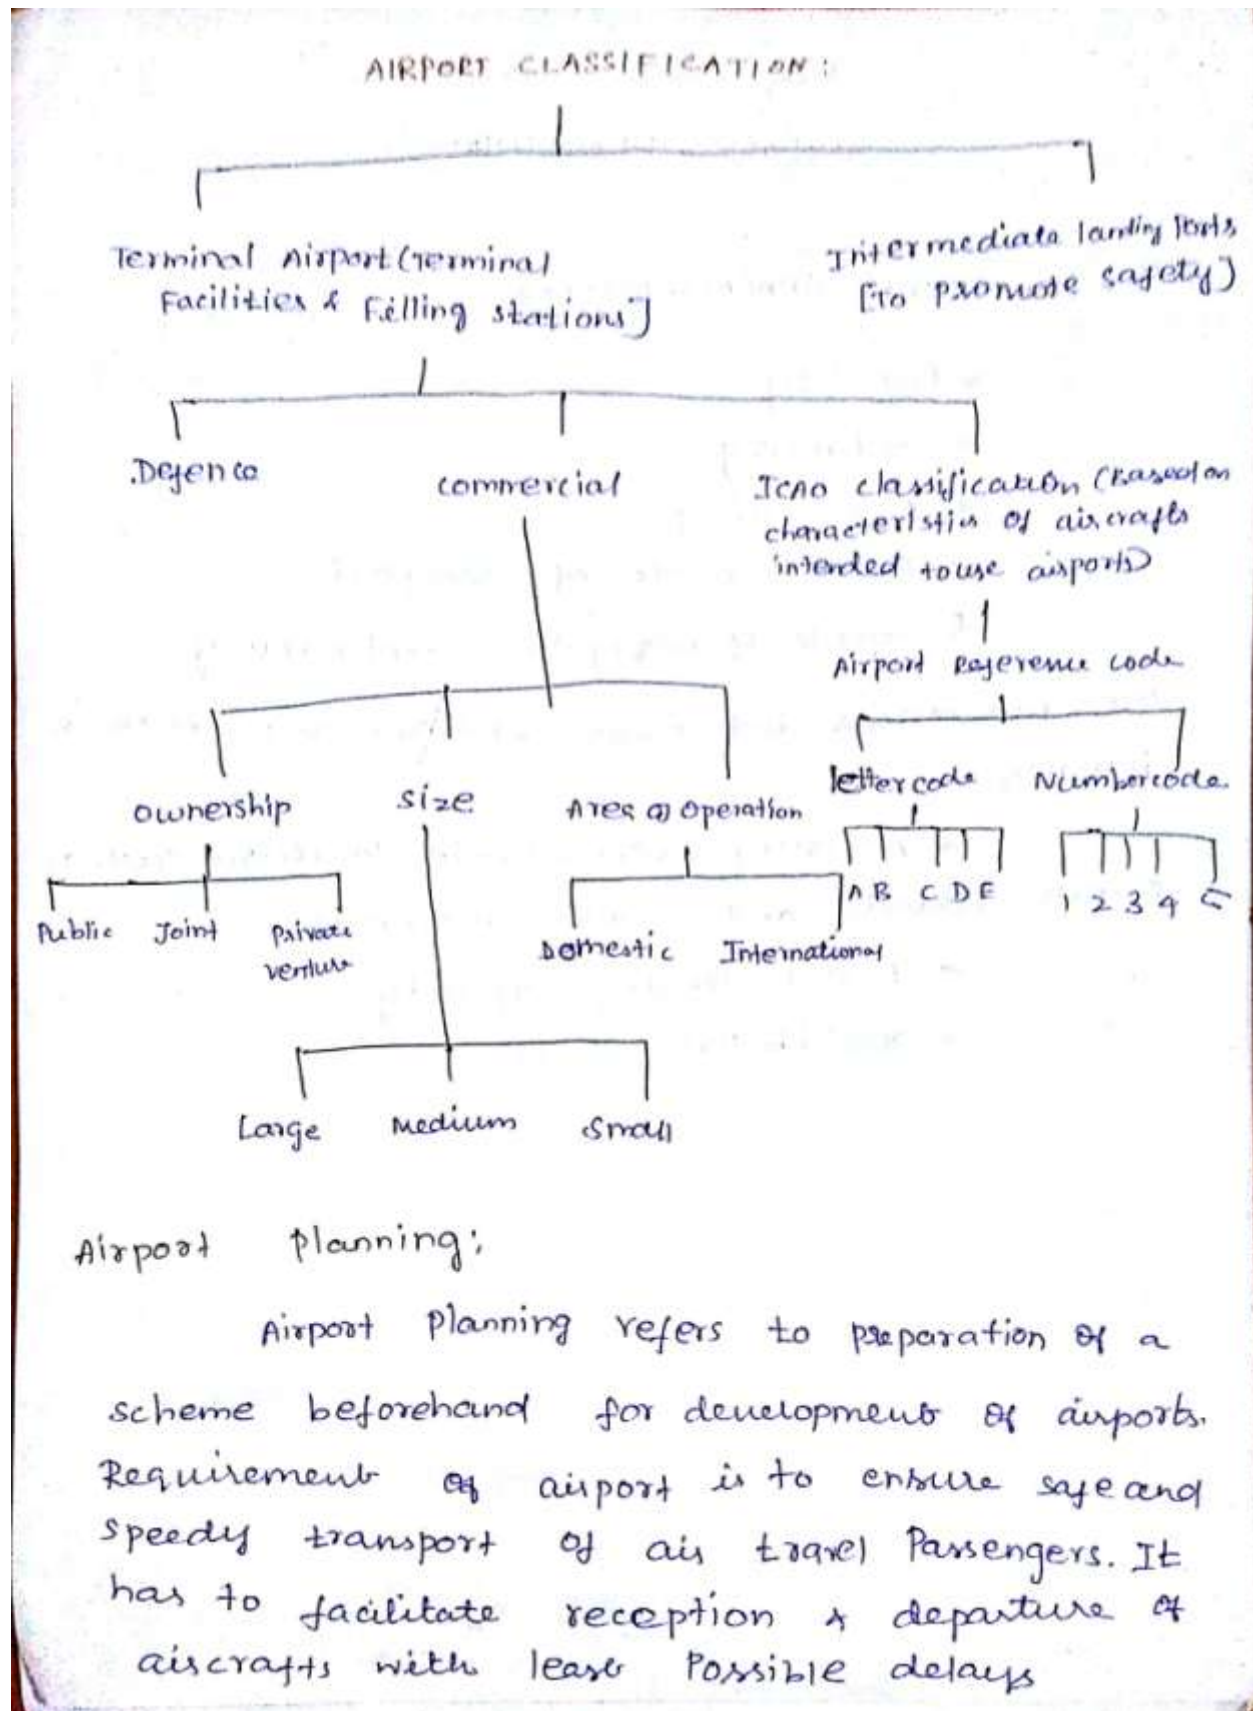 AIRPORT CLASSIFICATION:
Terminal Airport (Terminal
Facilities & Filling stations]
Intermediate landing Ports
[To promote safety)
Defence
commercial
ICAO classification (Based on
characteristics of aircrafts
intended to use airports)
Airport Reference code
letter code
Number code
ownership
size
Area of Operation
A B C D E
1 2 3 4 5
Public
Joint
Private
venture
Domestic
International
Large
Medium
Small
Airport Planning:
Airport Planning refers to preparation of a
scheme beforehand for development of airports.
Requirement of airport is to ensure safe and
speedy transport of air travel Passengers. It
has to facilitate reception & departure of
aircrafts with least Possible delays